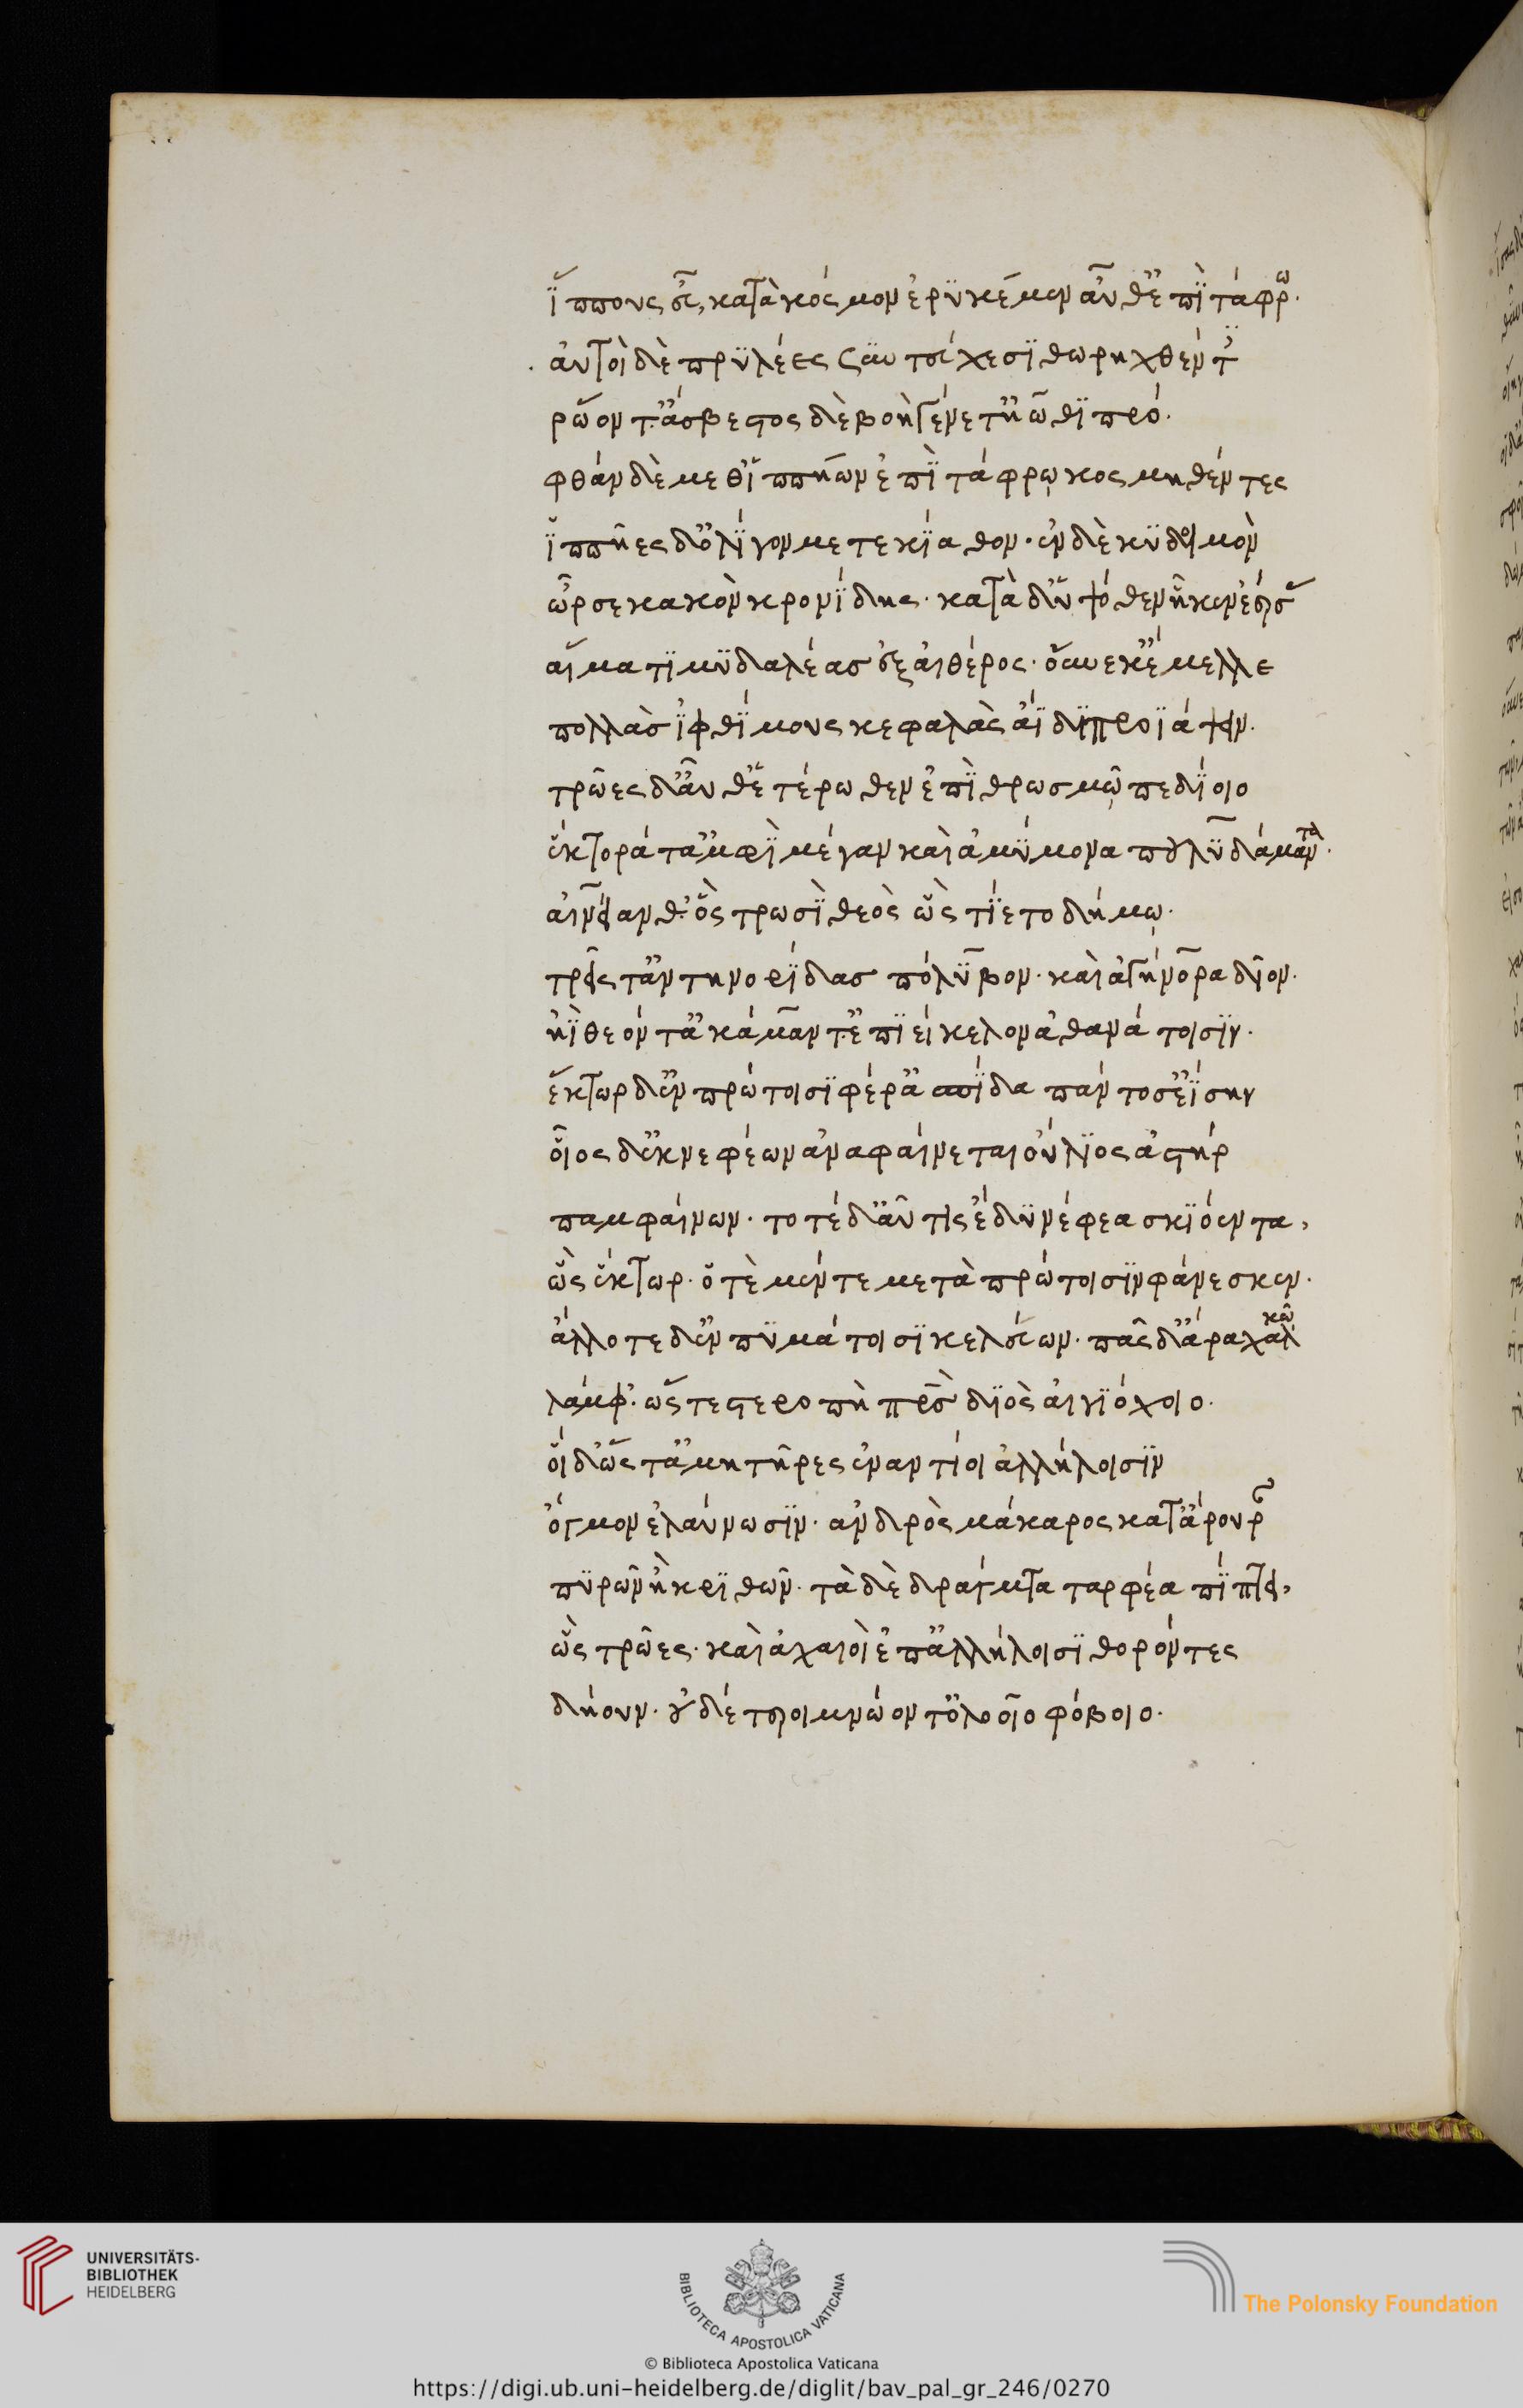 ἵππους εὖ κατὰ κόσμον ἐρυκέμεν αὖθ' ἐπὶ τάφρω·
αὐτοὶ δὲ πρυλέες σὺν τεύχεσι θωρηχθέντες
ῥώοντ'· ἄσβεστος δὲ βοὴ γένετ' ἠῶθι πρό·
φθὰν δὲ μεθ' ἱππήων ἐπὶ τάφρῳ κοσμηθέντες
ἱππῆες δ' ὀλίγον μετεκίαθον· ἐν δὲ κυδοιμὸν
ὦρσε κακὸν κρονίδης· κατὰ δ' ὑψόθεν ἧκεν ἐέρσας
αἵματι μυδαλέας ἐξ αἰθέρος· οὕνεκ' ἔμελλε
πολλὰς ἰφθίμους κεφαλὰς ἄϊδι προϊάψειν·
τρῶες δ' αὖθ' ἑτέρωθεν ἐπὶ θρωσμῷ πεδίοιο
ἕκτορά τ' ἀμφὶ μέγαν καὶ ἀμύμονα πουλυδάμαντα·
αἰνείαν θ'· ὃς τρωσὶ θεὸς ὣς τίετο δήμῳ·
τρεῖς τ' ἀντηνορίδας πόλυβον· καὶ ἀγήνορα δῖον·
ἠΐθεόν τ' ἀκάμαντ'· ἐπιείκελον ἀθανάτοισιν·
ἕκτωρ δ' ἐν πρώτοισι φέρ' ἀσπίδα παντοσ' ἐΐσην
οἷος δ' ἐκ νεφέων ἀναφαίνεται οὔλιος ἀστὴρ
παμφαίνων· τοτὲ δ' αὖτις ἔδυ νέφεα σκιόεντα,
ὣς ἕκτωρ· ὁτὲ μέν τε μετὰ πρώτοισιν φάνεσκεν·
ἄλλοτε δ' ἐν πυμάτοισι κελεύων· πᾶς δ' ἄρα χαλκῶ
λάμφ'· ὥστε στεροπὴ πρὸς διὸς αἰγιόχοιο·
οἳ δ' ὥς τ' ἀμητῆρες ἐναντίοι ἀλλήλοισιν
ὄγμον ἐλαύνωσιν· ἀνδρὸς μάκαρος κατ' ἄρουραν
πυρῶν ἢ κριθῶν· τὰ δὲ δράγματα ταρφέα πίπτει,
ὣς τρῶες· καὶ ἀχαιοὶ ἐπ' ἀλλήλοισι θορόντες
δήουν· οὐδέτεροι μνώοντ' ὀλοοῖο φόβοιο·
UNIVERSITÄTS-
BIBLIOTHEK
HEIDELBERG
BIBLIOTECA APOSTOLICA VATICANA
The Polonsky Foundation
© Biblioteca Apostolica Vaticana
https://digi.ub.uni-heidelberg.de/diglit/bav_pal_gr_246/0270